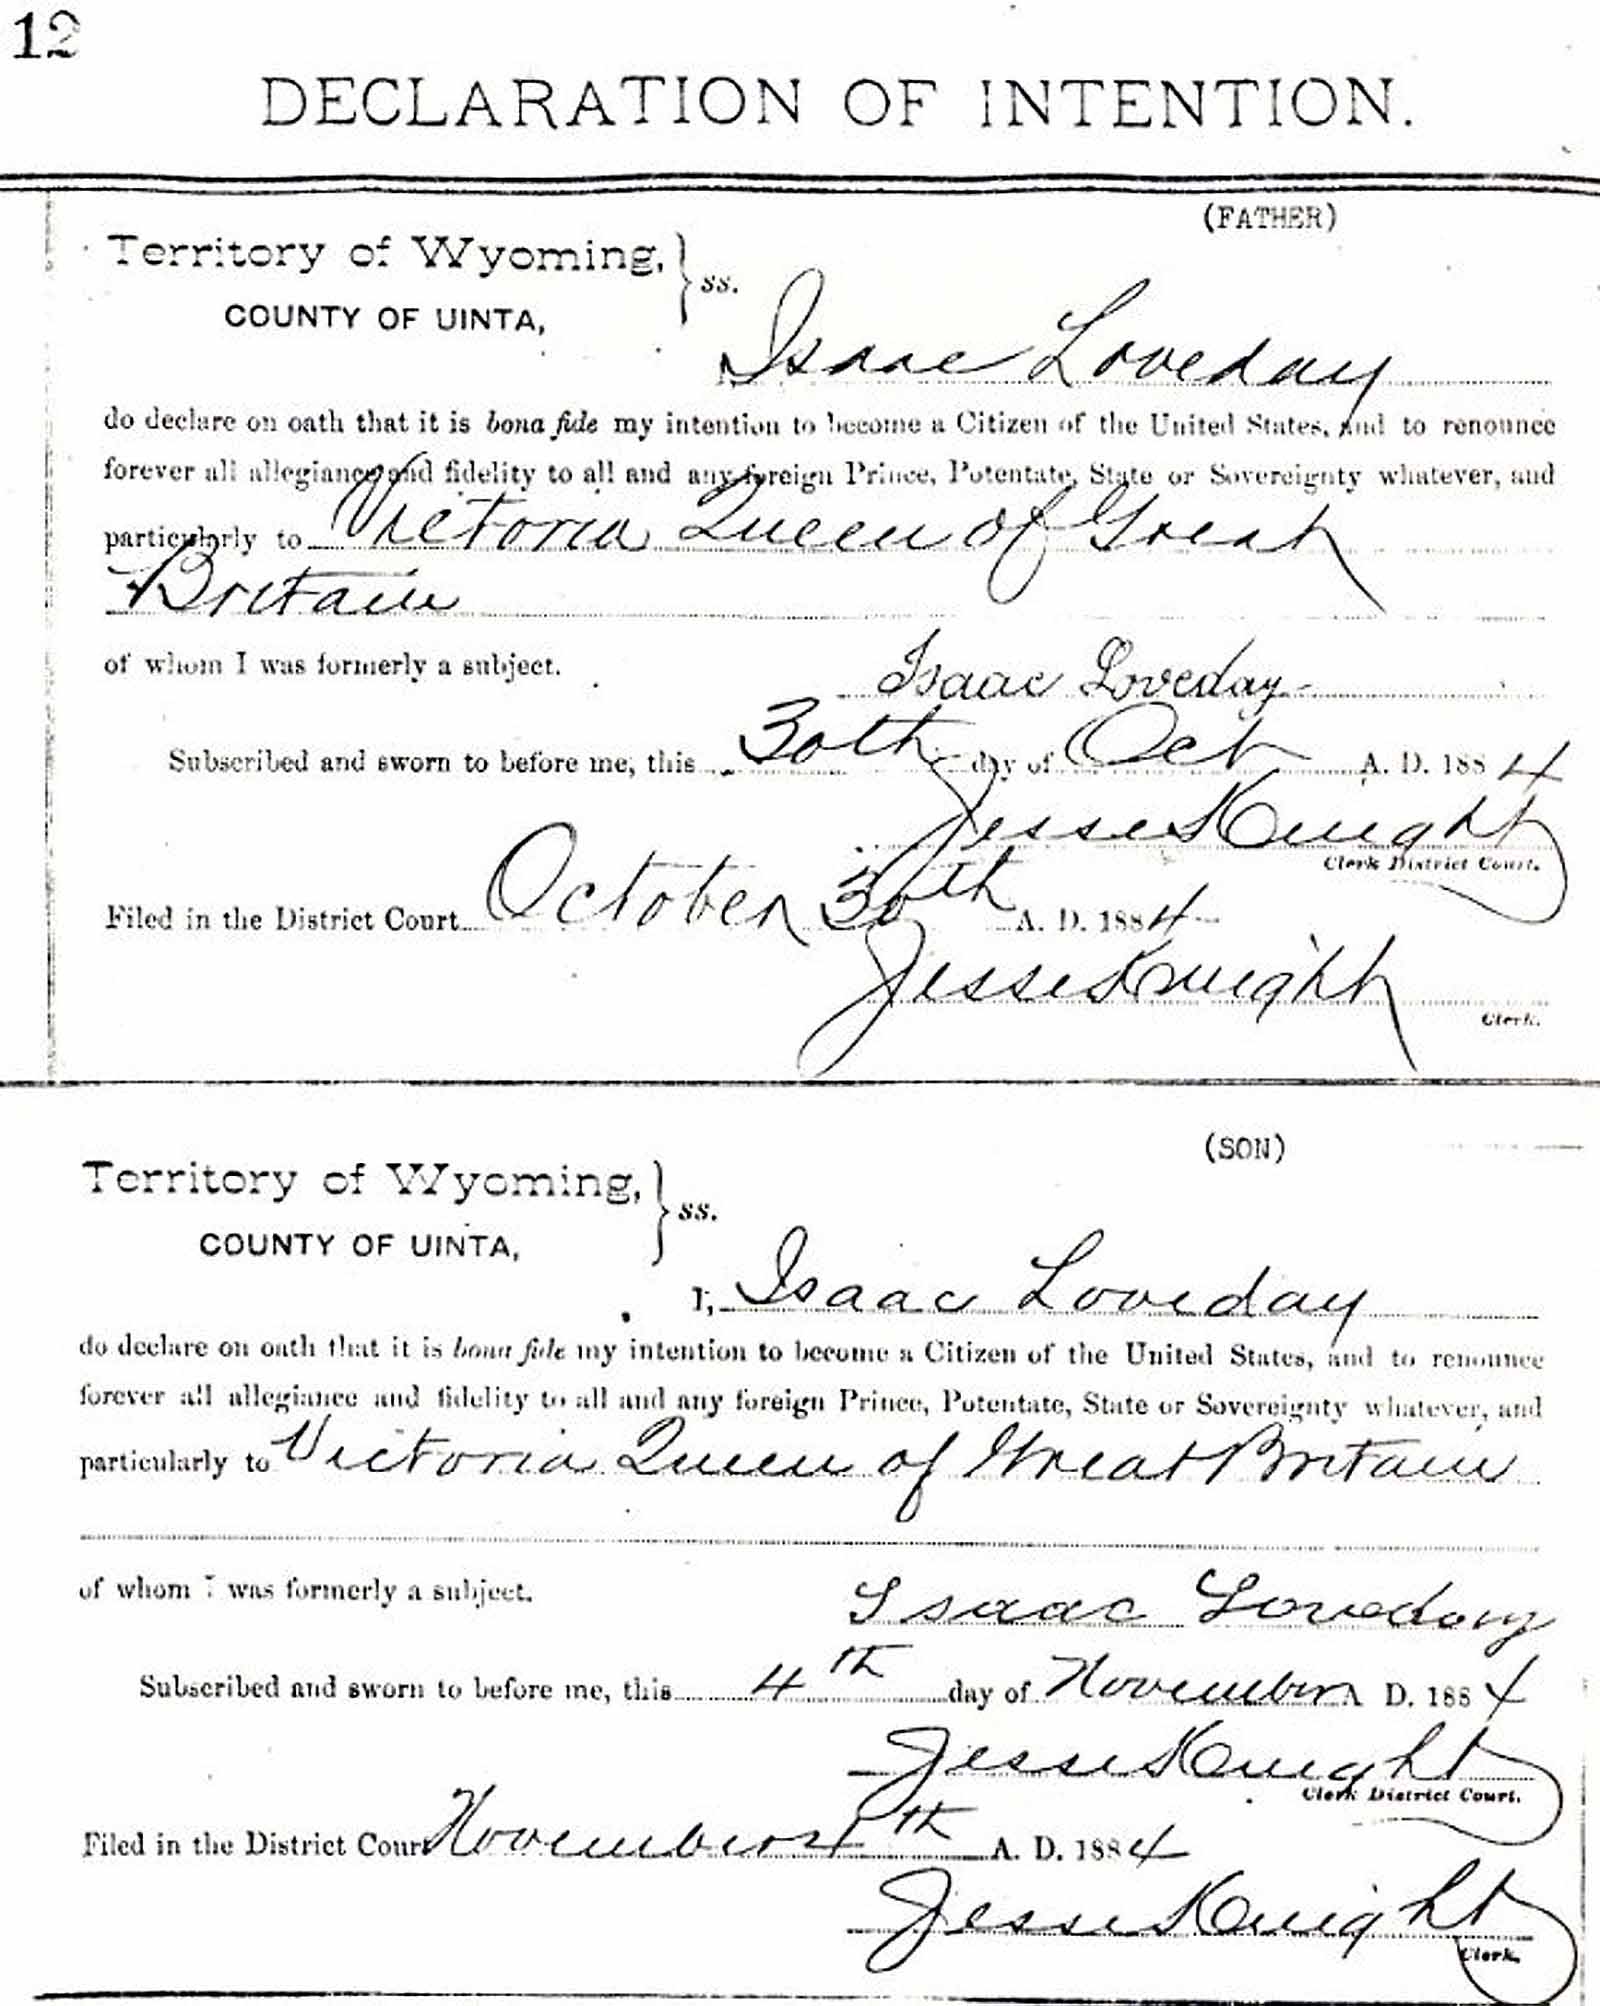 12
DECLARATION OF INTENTION.
(FATHER)
Territory of Wyoming,
COUNTY OF UINTA,
ss.
I, Isaac Loveday
do declare on oath that it is bona fide my intention to become a Citizen of the United States, and to renounce
forever all allegiance and fidelity to all and any foreign Prince, Potentate, State or Sovereignty whatever, and
particularly to Victoria Queen of Great
Britain
of whom I was formerly a subject.
Isaac Loveday
Subscribed and sworn to before me, this 30th day of Oct A. D. 1884
Jesse Knight
Clerk District Court.
Filed in the District Court October 30th A. D. 1884
Jesse Knight
Clerk.
(SON)
Territory of Wyoming,
COUNTY OF UINTA,
ss.
I, Isaac Loveday
do declare on oath that it is bona fide my intention to become a Citizen of the United States, and to renounce
forever all allegiance and fidelity to all and any foreign Prince, Potentate, State or Sovereignty whatever, and
particularly to Victoria Queen of Great Britain
of whom I was formerly a subject.
Isaac Loveday
Subscribed and sworn to before me, this 4th day of November A D. 1884
Jesse Knight
Clerk District Court.
Filed in the District Court November 4th A. D. 1884
Jesse Knight
Clerk.